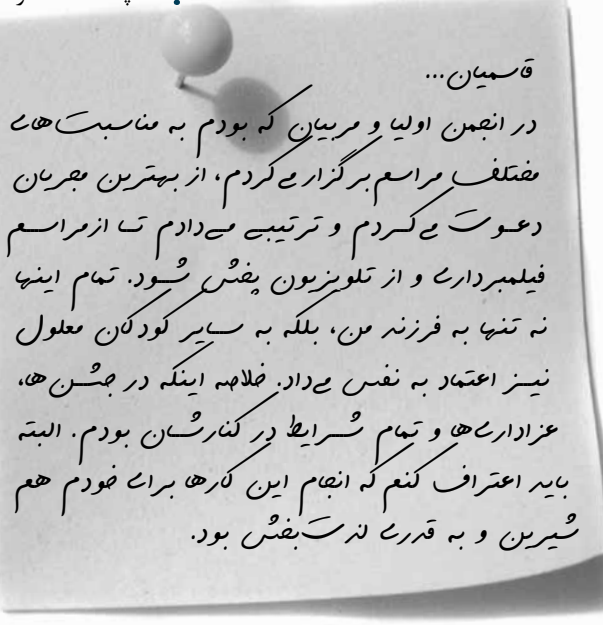 قاسمیان...
در انجمن اولیا و مربیان که بودم به مناسبت‌های
مختلف مراسم برگزار می‌کردم، از بهترین مجریان
دعوت می‌کردم و ترتیبی می‌دادم تا از مراسم
فیلمبرداری و از تلویزیون پخش شود. تمام اینها
نه تنها به فرزند من، بلکه به سایر کودکان معلول
نیز اعتماد به نفس می‌داد. خلاصه اینکه در جشن ها،
عزاداری‌ها و تمام شرایط در کنارشان بودم. البته
باید اعتراف کنم که انجام این کارها برای خودم هم
شیرین و به قدری لذت‌بخش بود.